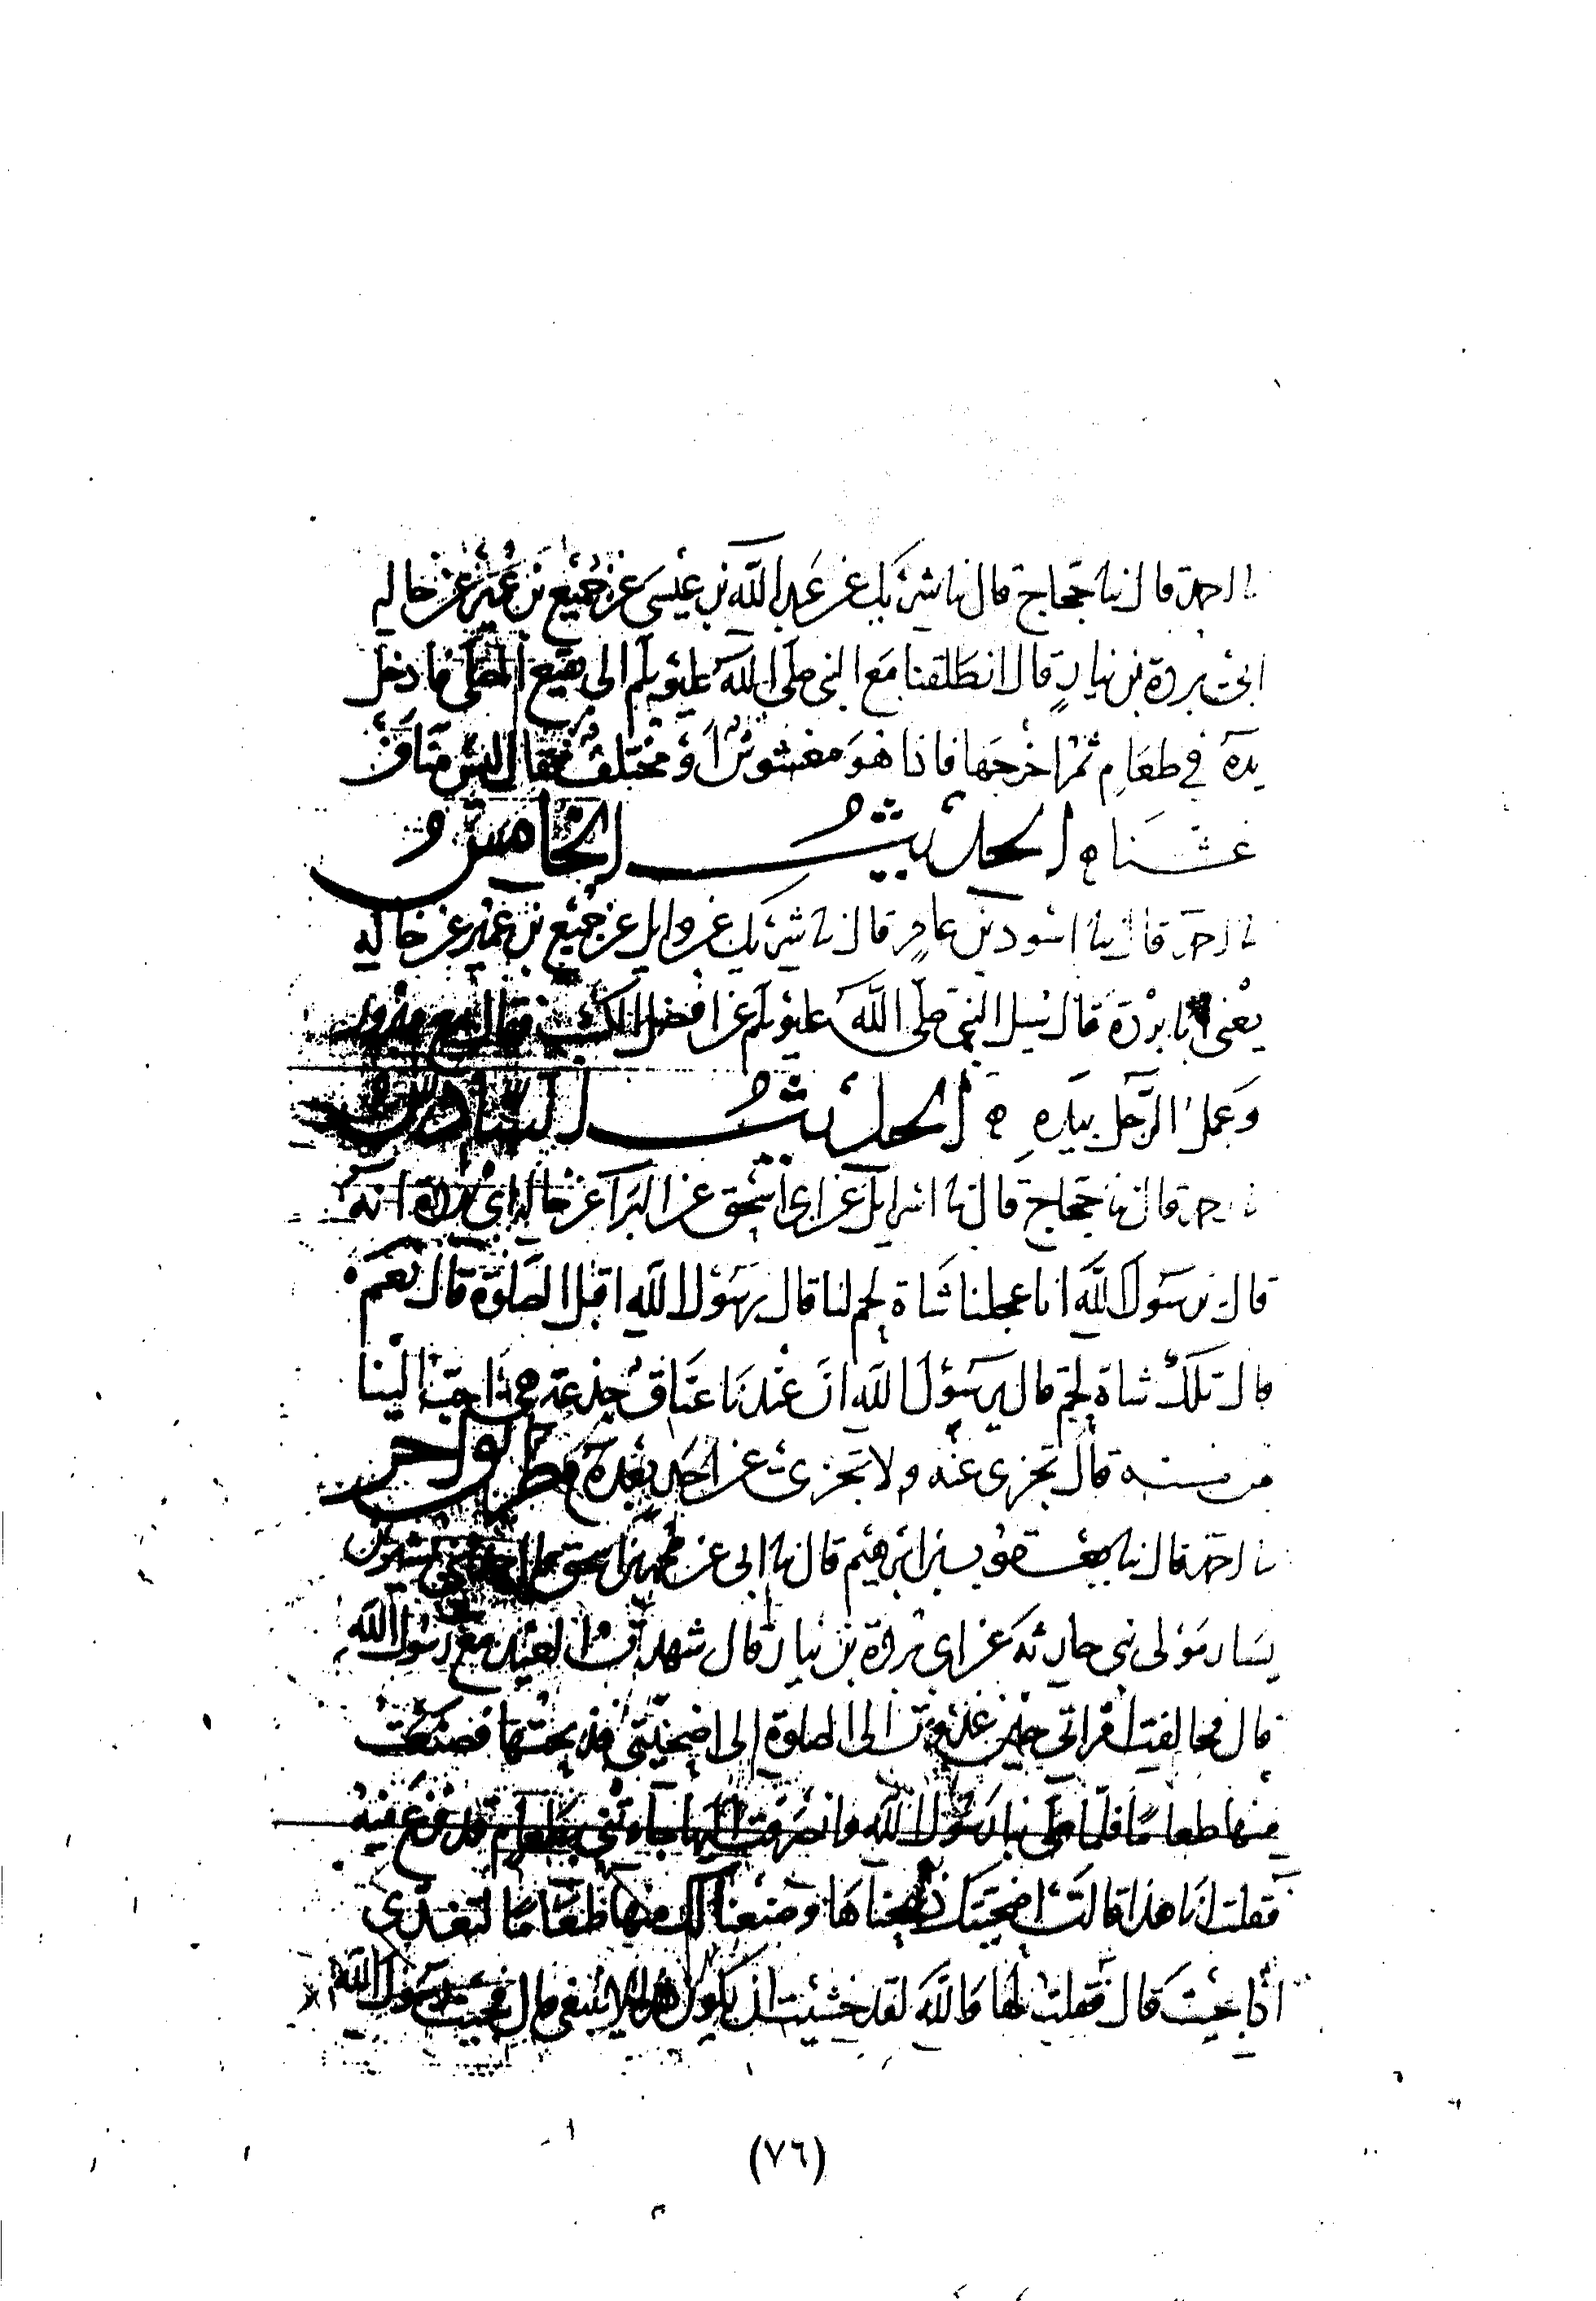 نا احمد قال نا حجاج قال نا شريك عن عبد الله بن عيسى عن جميع بن عمير عن خاله
ابي بردة بن نيار قال انطلقنا مع النبي صلى الله عليه وسلم الى بقيع المصلى فادخل
يده في طعام ثم اخرجها فاذا هو مغشوش او مختلف فقال ليس منا من
غشنا ه الحديث الخامس
نا احمد قال نا اسود بن عامر قال نا شريك عن وايل عن جميع بن عمير عن خاله
يعني ابا بردة قال سيل النبي صلى الله عليه وسلم عن افضل الكسب فقال بيع مبرور
وعمل الرجل بيده ه الحديث السادس
نا احمد قال نا حجاج قال نا اسرايل عن ابي اسحق عن البرا عن خاله ابي بردة انه
قال يرسول الله انا عجلنا شاة لحم لنا قال يرسول الله اقبل الصلوة قال نعم
قال تلك شاة لحم قال يرسول الله ان عندنا عناق جذعة هي احب الينا
من مسنه قال تجزى عنه ولا تجزي عن احد بعده
نا احمد قال نا يعقوب بن ابرهيم قال نا ابى عن محمد بن اسحق قال حدثني بشير بن
يسار مولى بني حارثة عن ابي بردة بن نيار قال شهدت العيد مع رسول الله
قال فخالفت امراتي حين غدوت الى الصلوة إلى اضحيتي فذبحتها فصنعت
منها طعاما فلما صلى بنا رسول الله وانصرفت اليها جاءتني بطعام قد فرغ منه
فقلت انا هذا قالت اضحيتك ذبحناها وصنعنا لك منها طعاما لتغدى
اذا جيت قال فقلت لها والله لقد خشيت ان يكون هذا لا ينبغي قال فجيت رسول الله
(٧٦)